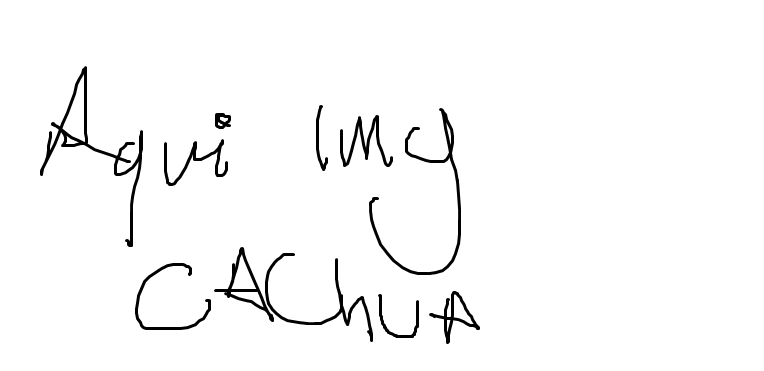 Aqui Img
CAChUA